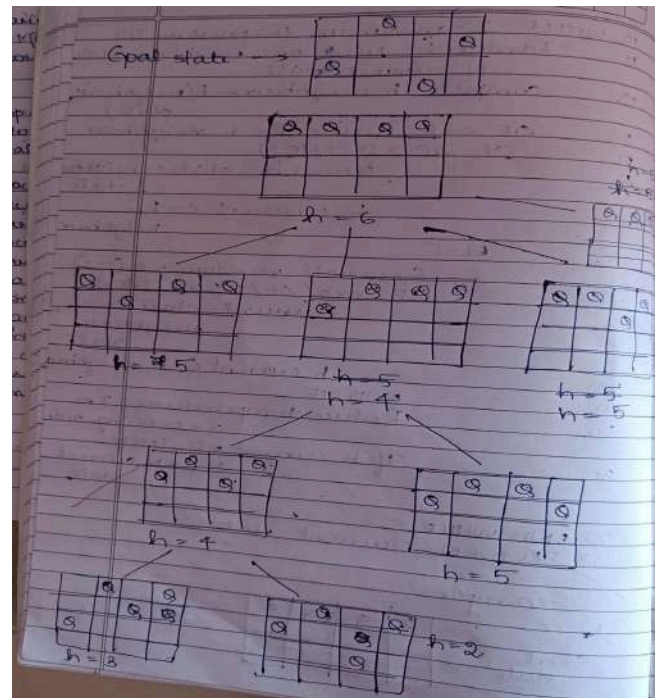 Goal state →
Q
Q
Q
Q
Q Q Q Q
h = 6
Q Q Q
Q
h = 5
Q Q Q
Q
h = 5
h = 4
Q Q Q
Q
h = 5
h = 5
Q Q
Q Q
h = 4
Q Q
Q Q
h = 5
Q Q
Q Q
Q
h = 3
Q Q
Q Q
Q
h = 2